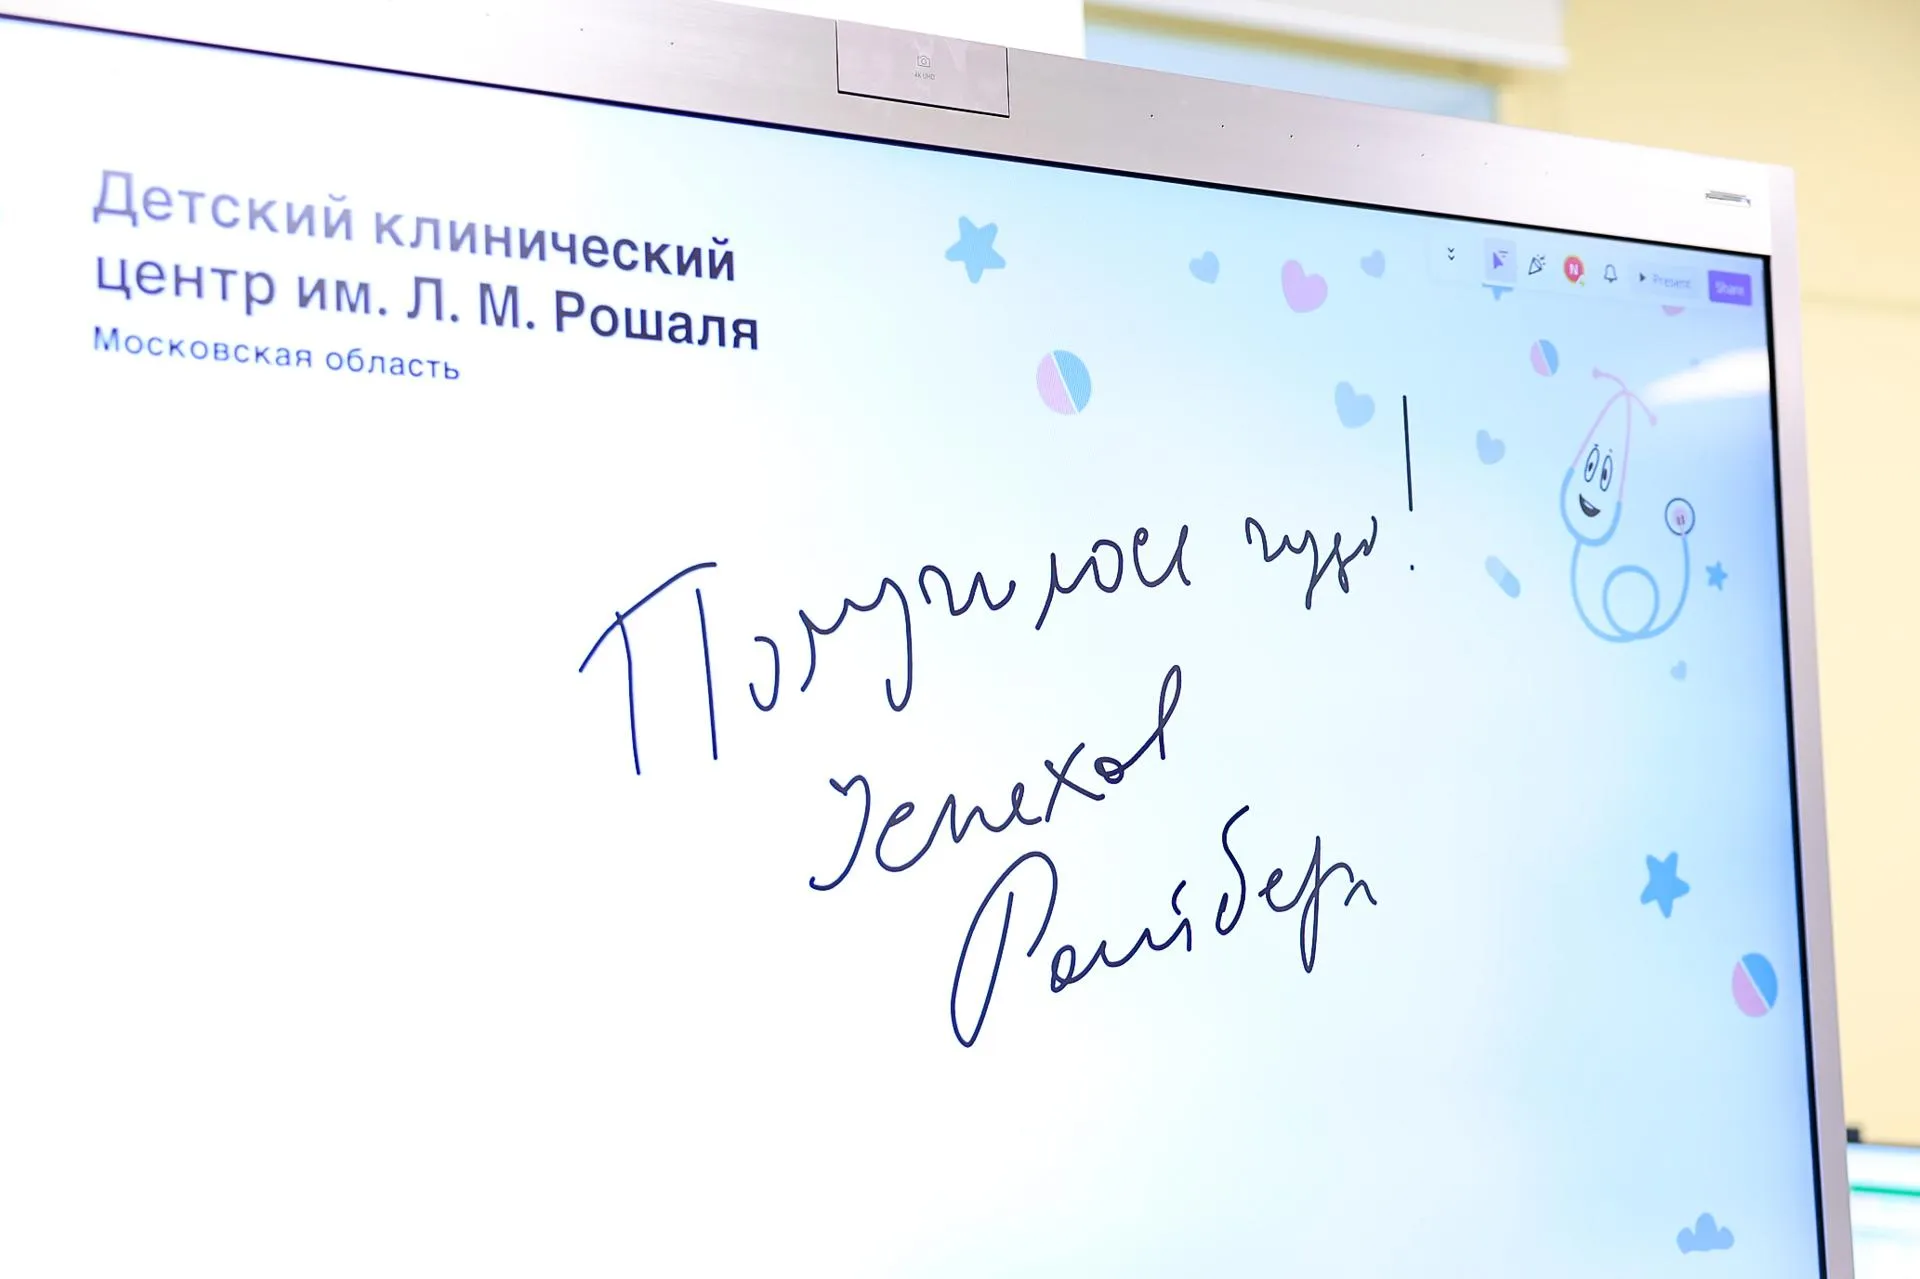 4K UHD
Детский клинический
центр им. Л. М. Рошаля
Московская область
N
Present
Share
Получилось чудо!
Успехов